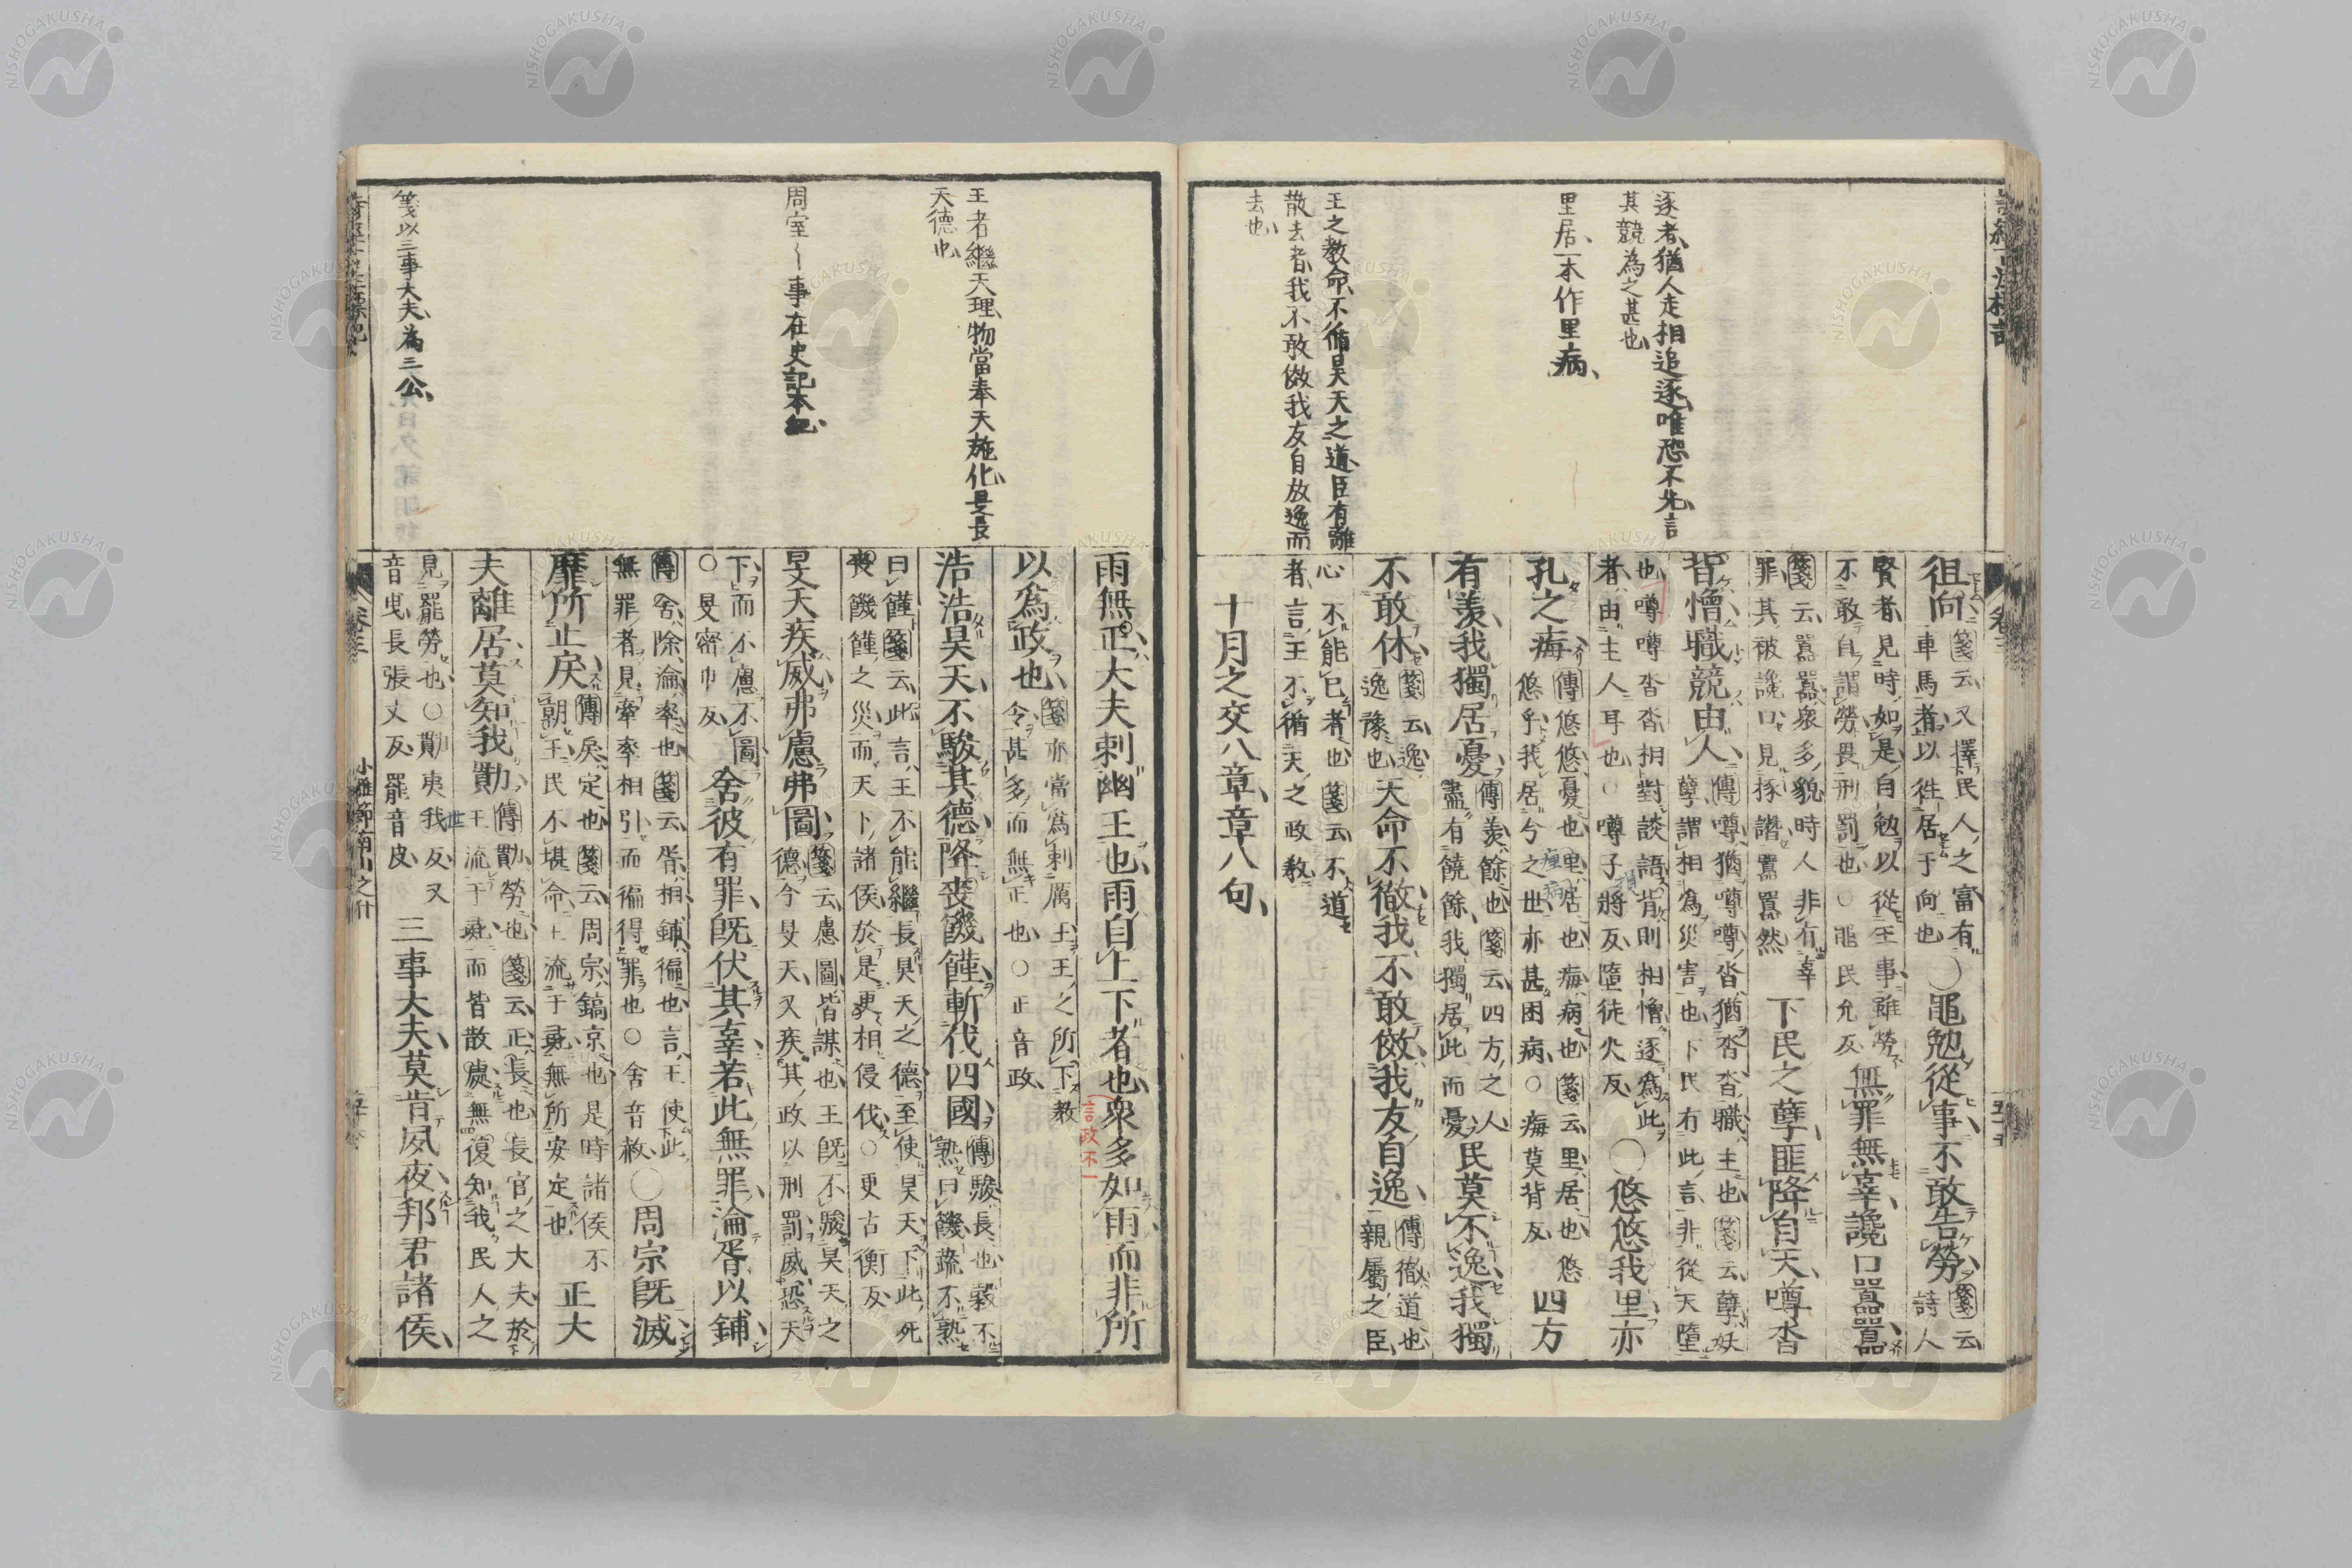 逐者猶人走相追逐唯恐不先言
其競為之甚也
里居一本作里病
王之教命不循昊天之道臣有離
散去者我不敢傚我友自放逸而
去也
徂向
箋云又擇民人之富有
車馬者以往居于向也
○黽勉從事不敢告勞
箋云
詩人
賢者見時如是自勉以從王事雖勞
不敢自謂勞畏刑罰也○黽民允反
無罪無辜讒口囂囂
箋云囂囂衆多貌時人非有辜
罪其被讒口見椓譖囂囂然
下民之孽匪降自天噂沓
背憎職競由人
傳噂猶噂噂沓猶沓沓職主也箋云孽妖
孽謂相為災害也下民有此言非從天墮
也噂噂沓沓相對談語背則相憎逐為此
者由主人耳也○噂子將反墮徒火反
○悠悠我里亦
孔之痗
傳悠悠憂也里居也痗病也箋云里居也悠
悠乎我居今之世亦甚困病○痗莫背反
四方
有羨我獨居憂
傳羨餘也箋云四方之人
盡有饒餘我獨居此而憂
民莫不逸我獨
不敢休
箋云逸
逸豫也
天命不徹我不敢傚我友自逸
傳徹道也
親屬之臣
心不能已者也箋云不道
者言王不循天之政教
十月之交八章章八句
王者繼天理物當奉天施化是長
天德也
周室〜事在史記本紀
箋以三事大夫為三公
雨無正大夫刺幽王也雨自上下者也衆多如雨而非所
言政不一
以為政也
箋亦當為刺厲王王之所下教
令甚多而無正也○正音政
浩浩昊天不駿其德降喪饑饉斬伐四國
傳駿長也穀不
熟曰饑蔬不熟
曰饉箋云此言王不能繼長昊天之德至使昊天下此死
喪饑饉之災而天下諸侯於是更相侵伐○更古衡反
旻天疾威弗慮弗圖
箋云慮圖皆謀也王既不駿昊天之
德今旻天又疾其政以刑罰威恐天
下而不慮不圖
○旻密巾反
舍彼有罪既伏其辜若此無罪淪胥以鋪
傳舍除淪率也箋云胥相鋪徧也言王使此
無罪者見牽率相引而徧得罪也○舍音赦
○周宗既滅
靡所止戾
傳戾定也箋云周宗鎬京也是時諸侯不
朝王民不堪命王流于彘無所安定也
正大
夫離居莫知我勩
傳勩勞也箋云正長也長官之大夫於
王流于彘而皆散處無復知我民人之
見罷勞也○勩夷世反又
音曳長張丈反罷音皮
三事大夫莫肯夙夜邦君諸侯
小雅節南山之什